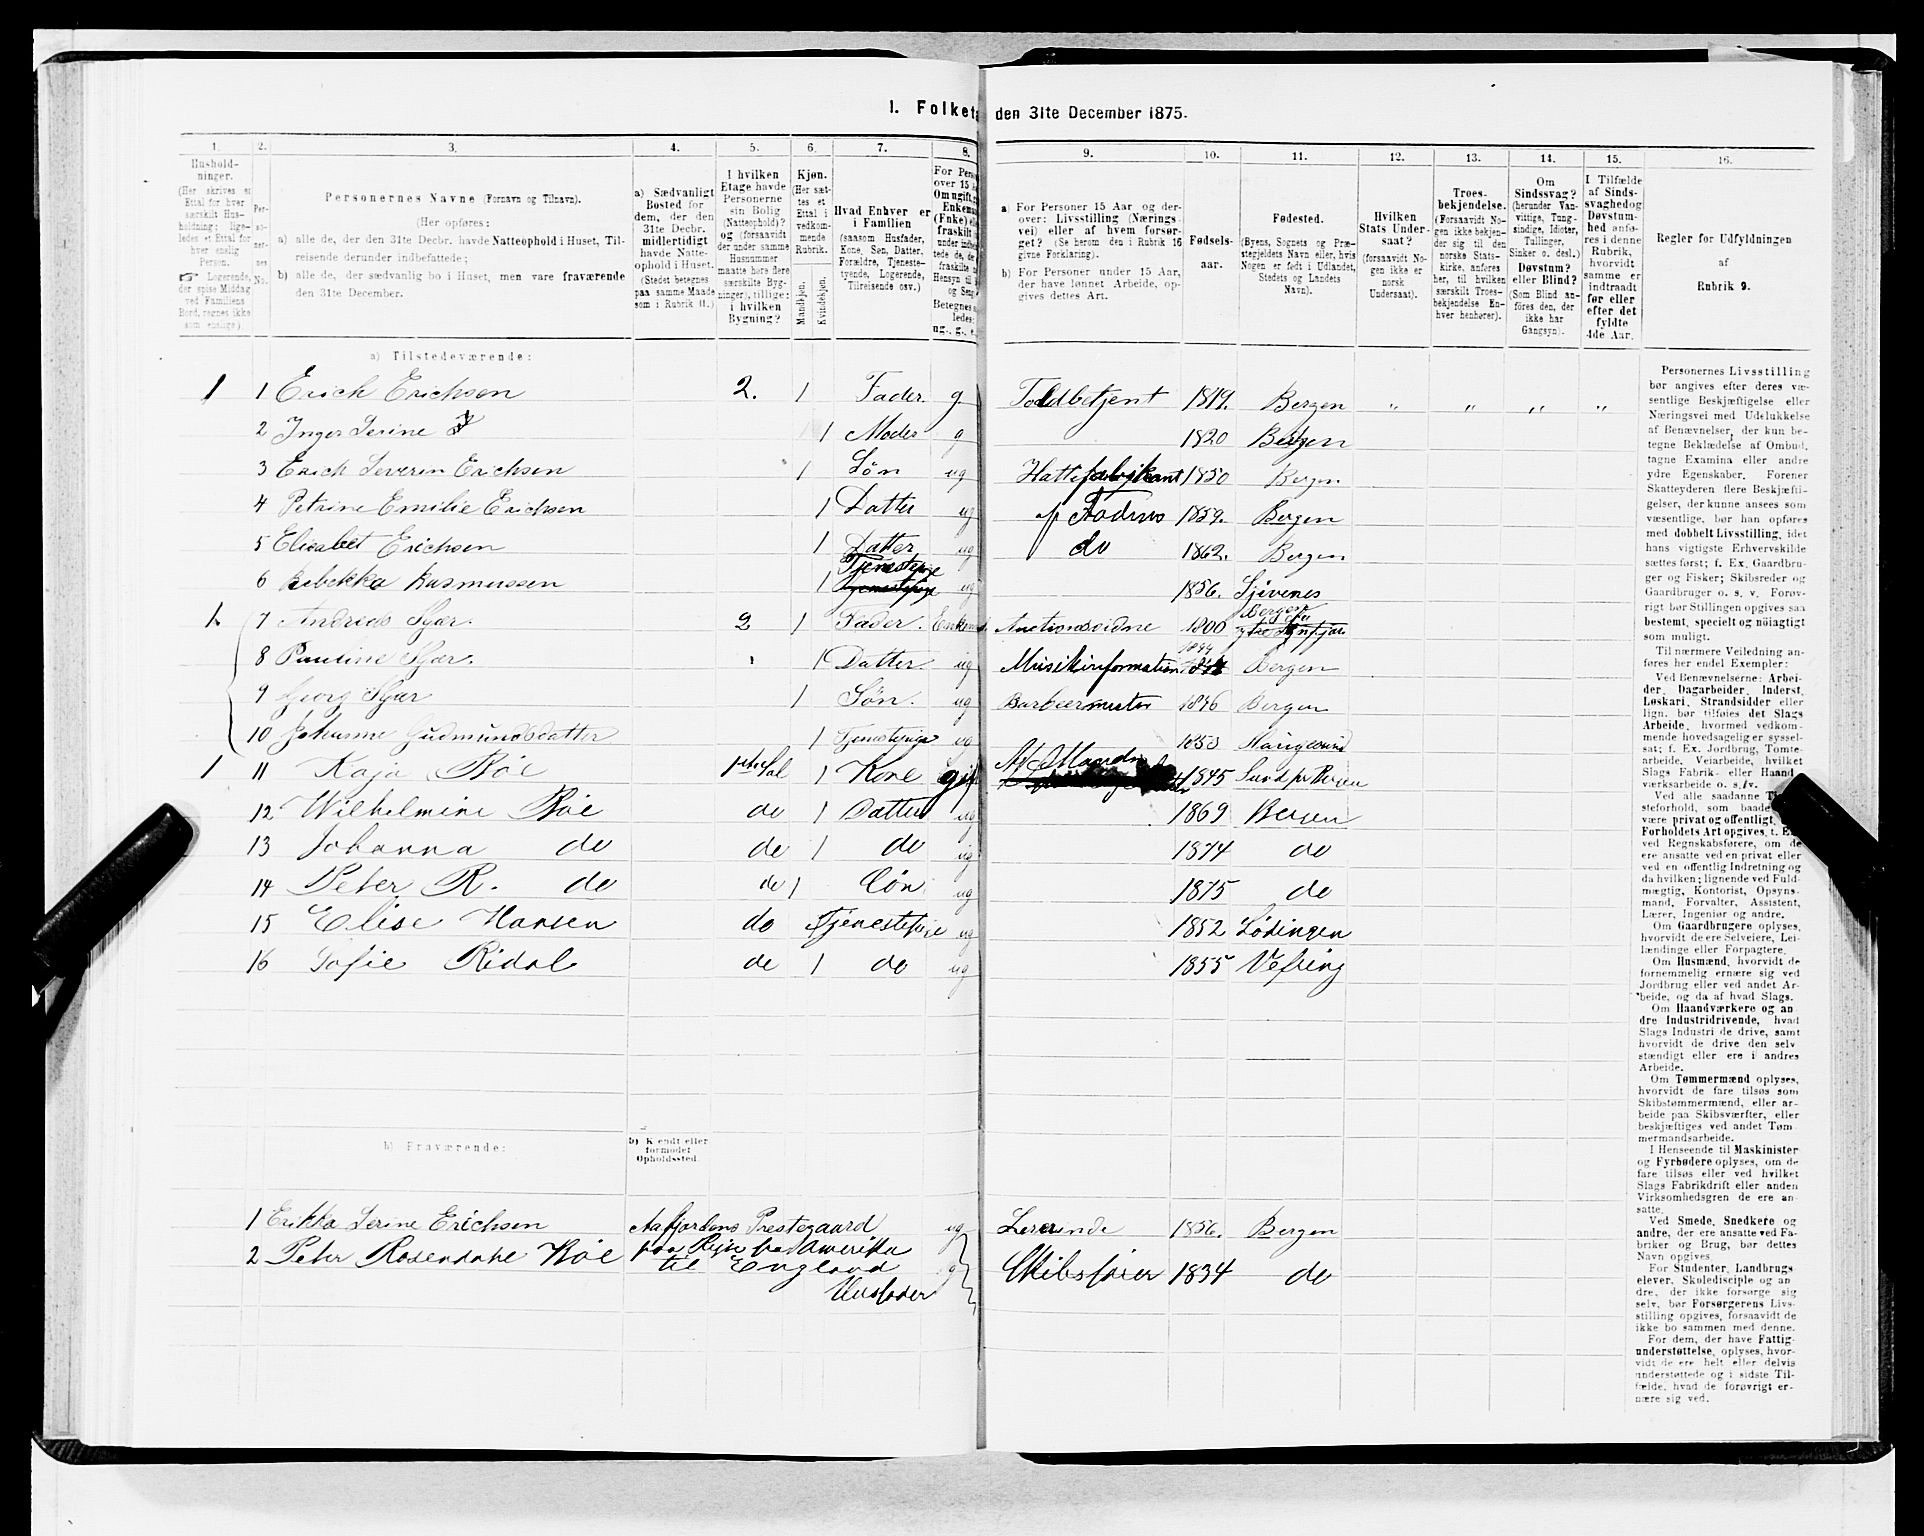 I. Folketæ
den 31te December 1875.
1. 2. 3. 4. 5. 6. 7. 8.
9. 10. 11. 12. 13. 14. 15. 16.
Hushold-
ninger.
(Her skrives et
Ettal for hver
særskilt Hus-
holdning; lige-
ledes et Ettal for
hver enslig
Person.
☞ Logerende,
der spise Middag
ved Familiens
Bord, regnes ikke
som enslige).
Per-
so-
ner-
nes
No.
Personernes Navne (Fornavn og Tilnavn).
(Her opføres:
a) alle de, der den 31te Decbr. havde Natteophold i Huset, Til-
reisende derunder indbefattede;
b) alle de, der sædvanlig bo i Huset, men vare fraværende
den 31te December.
a) Sædvanligt
Bosted for
dem, der den
31te Decbr.
midlertidigt
havde Natte-
ophold i Huset.
(Stedet betegnes
paa samme Maade
som i Rubrik 11.)
I hvilken
Etage havde
Personerne
sin Bolig
(Natteophold)?
og (forsaavidt
der under samme
Husnummer
maatte høre flere
særskilte Byg-
ninger), tillige:
i hvilken
Bygning?
Kjøn.
(Her sæt-
tes et
Ettal i
vedkom-
mende
Rubrik.
Mandkjøn.
Kvindekjøn.
Hvad Enhver er
i Familien
(saasom Husfader,
Kone, Søn, Datter,
Forældre, Tjeneste-
tyende, Logerende,
Tilreisende osv.)
a) For Personer 15 Aar og der-
over: Livsstilling (Nærings-
vei) eller af hvem forsør-
get? (Se herom den i Rubrik 16
givne Forklaring).
b) For Personer under 15 Aar,
der have lønnet Arbeide, op-
gives dettes Art.
Fødsels-
aar.
Fødested.
(Byens, Sognets og Præ-
stegjeldets Navn eller, hvis
Nogen er født i Udlandet,
Stedets og Landets
Navn).
Hvilken
Stats Under-
saat?
(forsaavidt No-
gen ikke er
norsk
Undersaat).
Troes-
bekjendelse.
(Forsaavidt No-
gen ikke bekjen-
der sig til den
norske Stats-
kirke, anføres
her, til hvilken
særskilt Troes-
bekjendelse En-
hver henhører).
Om
Sindssvag?
(herunder Van-
vittige, Tung-
sindige, Idioter,
Tullinger,
Sinker o. desl.)
Døvstum?
eller Blind?
(Som Blind an-
føres den, der
ikke har
Gangsyn).
I Tilfælde
af Sinds-
svaghed og
Døvstum-
hed anfø-
res i denne
Rubrik,
hvorvidt
samme er
indtraadt
før eller
efter det
fyldte
4de Aar.
Regler for Udfyldningen
af
Rubrik 9.
a) Tilstedeværende:
1 1 Erich Erichsen 2. 1 Fader. g Toldbetjent 1819. Bergen " " " "
2 Inger Serine 1 Moder g 1820 Bergen
3 Erich Severin Erichsen 1 Søn ug Hattefabrikant 1850 Bergen
4 Petrine Emilie Erichsen 1 Datter ug af Faderen 1859. Bergen
5 Elisabet Erichsen 1 Datter ug do 1862. Bergen
6 Rebekka Rasmussen 1 Tjenestepige ug 1856.
1 7 Andreas 2 1 Fader. Enkem. 1800 Bergen
8 Pauline 1 Datter ug Musikinformation Bergen
9 Georg 1 Søn. ug Barbeermester 1846 Bergen
10 Johanne Gudmundsdatter 1 Tjenestepige ug 1853 Haugesund
1 11 Kaja Röe 1ste Sal 1 Kone gift Af Manden 1845 Sund pr Bergen
12 Wilhelmine Röe do 1 Datter ug 1869 Bergen
13 Johanna do do 1 do ug 1874 do
14 Peter R. do do 1 Søn ug 1875 do
15 Elise Hansen do 1 Tjenestepige ug 1852 Lødingen
16 Sofie Ridal do 1 do ug 1855 Vefring
b) Fraværende:
b) Kjendt eller
formodet
Opholdssted.
1 Erikka Serine Erichsen Aafjordens Prestegaard ug Lærerinde 1856. Bergen
2 Peter Rosendahl Röe paa Rejse fra Amerika
til England g Skibsfører 1834 do
Husfader
Personernes Livsstilling
bør angives efter deres væ-
sentlige Beskjæftigelse eller
Næringsvei med Udelukkelse
af Benævnelser, der kun be-
tegne Beklædelse af Ombud,
tagne Examina eller andre
ydre Egenskaber. Forener
Skatteyderen flere Beskjæfti-
gelser, der kunne ansees som
væsentlige, bør han opføres
med dobbelt Livsstilling, idet
hans vigtigste Erhvervskilde
sættes først; f. Ex. Gaardbru-
ger og Fisker; Skibsreder og
Gaardbruger o. s. v. Forøv-
rigt bør Stillingen opgives saa
bestemt, specielt og nøiagtigt
som muligt.
Til nærmere Veiledning an-
føres her endel Exempler:
Ved Benævnelserne: Arbei-
der, Dagarbeider, Inderst,
Løskari, Strandsidder eller
lign. bør tilføies det Slags
Arbeide, hvormed vedkom-
mende hovedsagelig er syssel-
sat; f. Ex. Jordbrug, Tomte-
arbeide, Veiarbeide, hvilket
Slags Fabrik- eller Haand-
værksarbeide o. s. v.
Ved alle saadanne
steforhold, som baade
være privat og offentligt,
Forholdets Art opgives, t. E
ved Regnskabsførere, om de
ere ansatte ved en privat eller
ved en offentlig Indretning og
da hvilken; lignende ved Fuld-
mægtig, Kontorist, Opsyns-
mand, Forvalter, Assistent,
Lærer, Ingeniør og andre.
Om Gaardbrugere oplyses,
hvorvidt de ere Selveiere, Lei-
lændinge eller Forpagtere.
Om Husmænd, hvorvidt de
fornemmelig ernære sig ved
Jordbrug eller ved andet Ar-
beide, og da af hvad Slags.
Om Haandværkere og an-
dre Industridrivende, hvad
Slags Industri de drive, samt
hvorvidt de drive den selv-
stændigt eller ere i andres
Arbeide.
Om Tømmermænd oplyses,
hvorvidt de fare tilsøs som
Skibstømmermænd, eller ar-
beide paa Skibsværfter, eller
beskjæftiges ved andet Tøm-
mermandsarbeide.
I Henseende til Maskinister
og Fyrbødere oplyses, om de
fare tilsøs eller ved hvilket
Slags Fabrikdrift eller anden
Virksomhedsgren de ere an-
satte.
Ved Smede, Snedkere og
andre, der ere ansatte ved Fa-
briker og Brug, bør dettes
Navn opgives.
For Studenter, Landbrugs-
elever, Skoledisciple og an-
dre, der ikke forsørge sig
selv, bør Forsørgerens Livs-
stilling opgives, forsaavidt de
ikke bo sammen med denne.
For dem, der have Fattig-
understøttelse, oplyses, hvor-
vidt de ere helt eller delvis
understøttede og i sidste Til-
fælde, hvad de forøvrigt er-
nære sig ved.